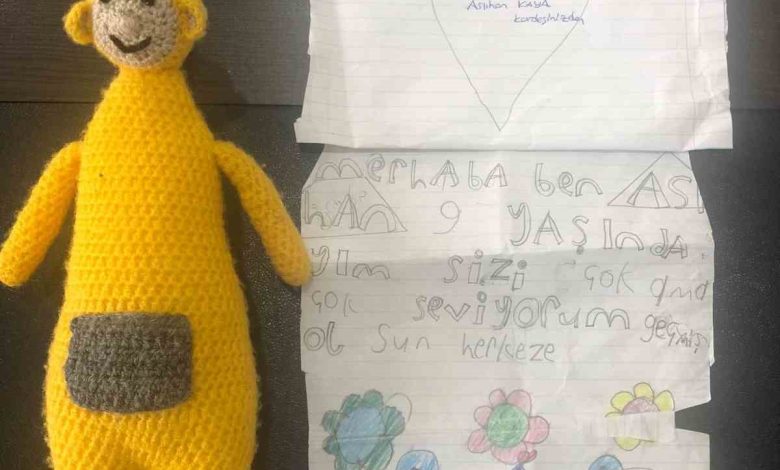 Aslıhan KAYA
kardeşinizden
merhaba ben ASl
hAn 9 YAŞInDA
yım sizi çok ama
çok seviyorum geçmiş
ol sun herkeze